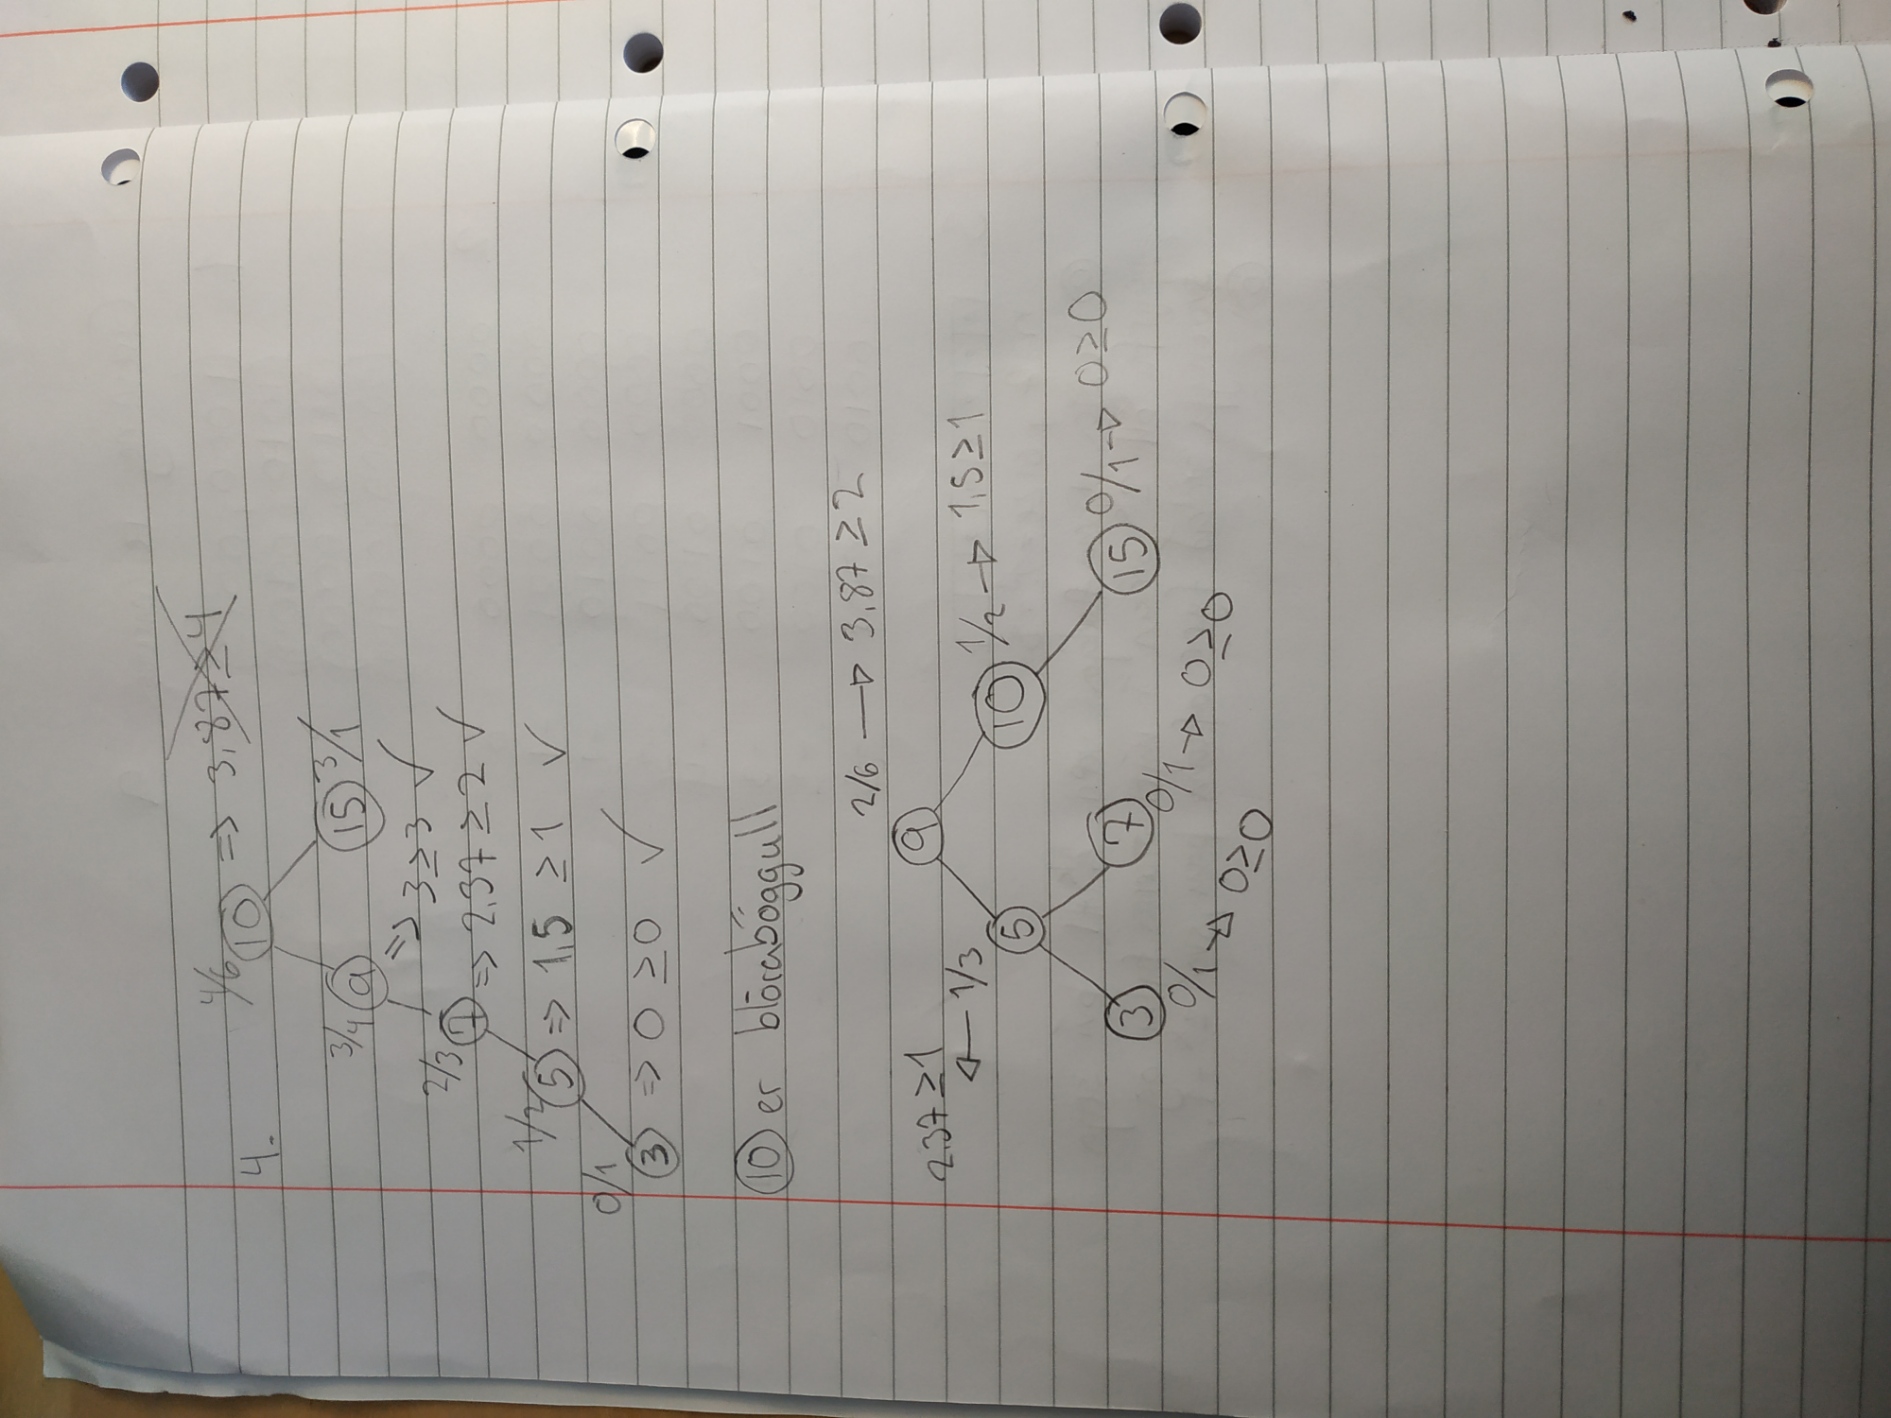 4.
4/6 10 => 3,87 ≥ 4
3/4 9 15 3/1
=> 3 ≥ 3 ✓
2/3 7 => 2,37 ≥ 2 ✓
1/2 5 => 1,5 ≥ 1 ✓
0/1
3 => 0 ≥ 0 ✓
10 er blórabőggull
2/6 → 3,87 ≥ 2
9
2,37 ≥ 1 ← 1/3
5 10 1/2 → 1,5 ≥ 1
3 7 15 0/1 → 0 ≥ 0
0/1 → 0 ≥ 0
0/1 → 0 ≥ 0